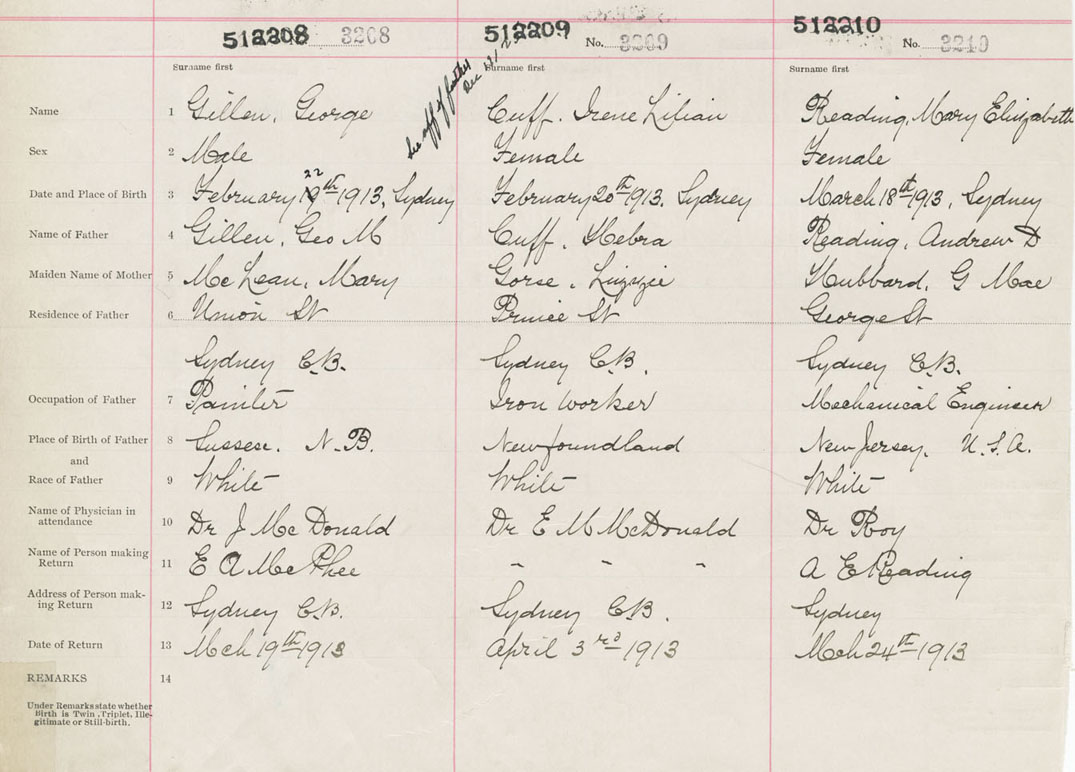 512208 3208 512209 No. 3209 512210 No. 3210
Surname first Surname first Surname first
See aff of father
Dec
Name 1 Gillen, George Cuff. Irene Lilian Reading, Mary Elizabeth
Sex 2 Male Female Female
22
Date and Place of Birth 3 February 19th 1913, Sydney February 20th 1913, Sydney March 18th 1913, Sydney
Name of Father 4 Gillen, Geo M Cuff, Hebra Reading, Andrew D
Maiden Name of Mother 5 Mc Lean, Mary Gorse, Lizzie Hubbard, G Mae
Residence of Father 6 Union St Prince St George St
Sydney C.B. Sydney C.B. Sydney C.B.
Occupation of Father 7 Painter Iron Worker Mechanical Engineer
Place of Birth of Father 8 Sussex. N.B. Newfoundland New Jersey. U.S.A.
and
Race of Father 9 White White White
Name of Physician in
attendance 10 Dr J Mc Donald Dr E M McDonald Dr Roy
Name of Person making
Return 11 E A Mc Phee " " " A E Reading
Address of Person mak-
ing Return 12 Sydney C.B. Sydney C.B. Sydney
Date of Return 13 Mch 19th 1913 April 3rd 1913 Mch 24th 1913
REMARKS 14
Under Remarks state whether
Birth is Twin, Triplet, Ille-
gitimate or Still-birth.